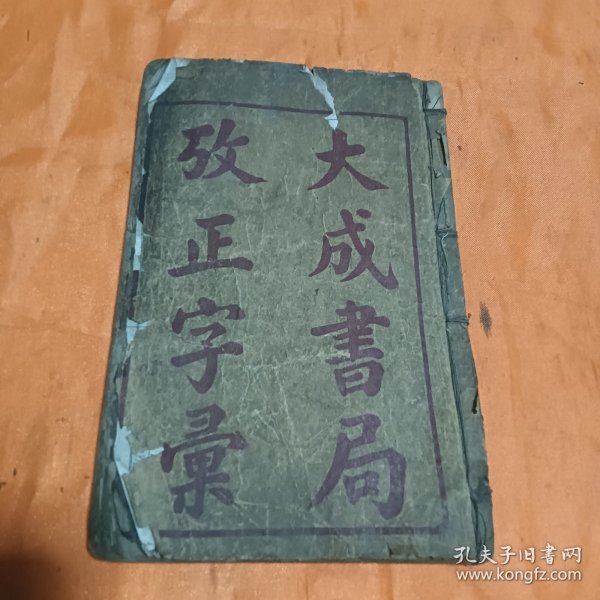 大成書局
攷正字彙
孔夫子旧書网
www.kongfz.com